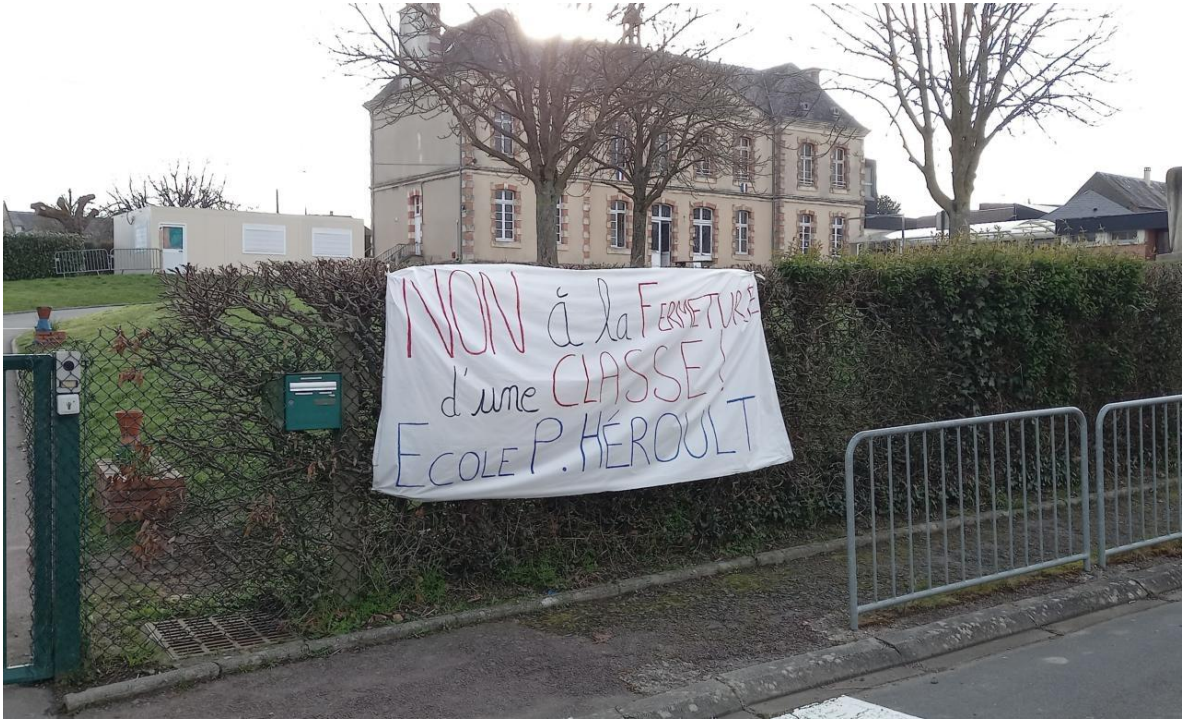 NON à la FERMETURE
d'une CLASSE!
ECOLE P. HÉROULT